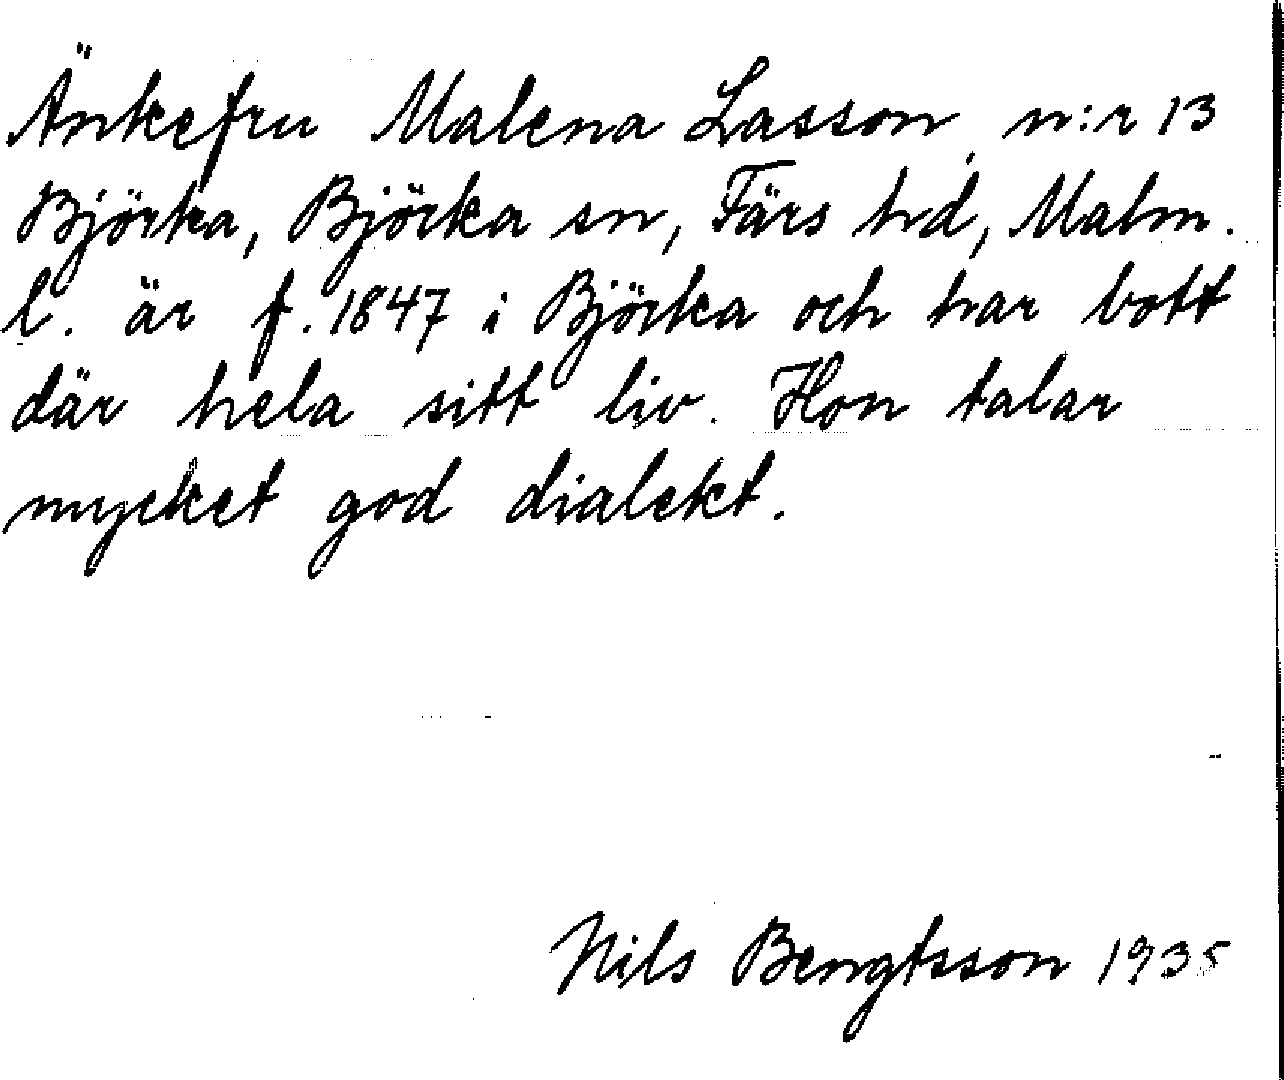 Änkefru Malena Lasson n:r 13
Björka, Björka sn, Färs hd, Malm.
l. är f. 1847 i Björka och har bott
där hela sitt liv. Hon talar
mycket god dialekt.
Nils Bengtsson 1935